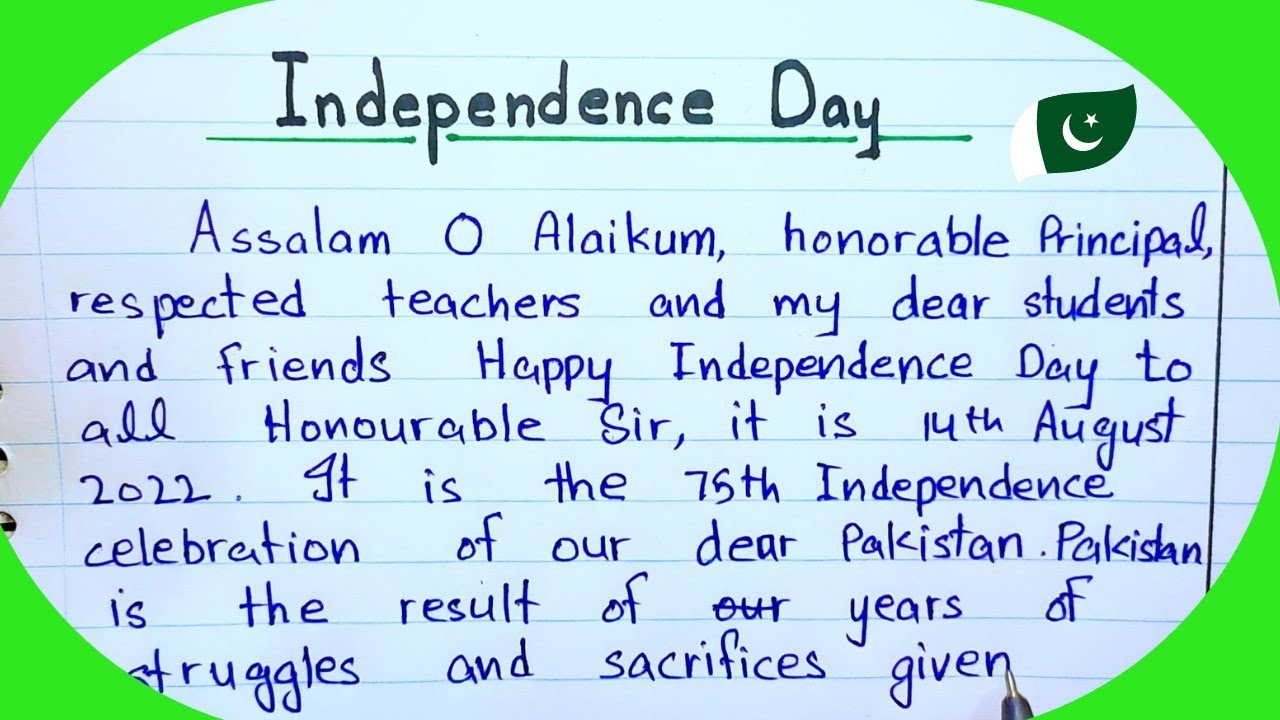 Independence Day
Assalam O Alaikum, honorable Principal,
respected teachers and my dear students
and friends Happy Independence Day to
all Honourable Sir, it is 14th August
2022. It is the 75th Independence
celebration of our dear Pakistan. Pakistan
is the result of our years of
struggles and sacrifices given